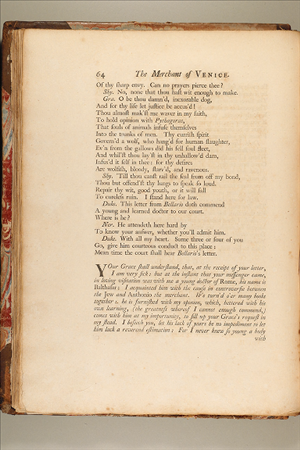 64 The Merchant of VENICE.
Of thy sharp envy. Can no prayers pierce thee?
Shy. No, none that thou hast wit enough to make.
Gra. O be thou damn'd, inexorable dog,
And for thy life let justice be accus'd!
Thou almost mak'st me waver in my faith,
To hold opinion with Pythagoras,
That souls of animals infuse themselves
Into the trunks of men. Thy currish spirit
Govern'd a wolf, who hang'd for human slaughter,
Ev'n from the gallows did his fell soul fleet,
And whil'st thou lay'st in thy unhallow'd dam,
Infus'd it self in thee: for thy desires
Are wolfish, bloody, starv'd, and ravenous.
Shy. 'Till thou canst rail the seal from off my bond,
Thou but offend'st thy lungs to speak so loud.
Repair thy wit, good youth, or it will fall
To cureless ruin. I stand here for law.
Duke. This letter from Bellario doth commend
A young and learned doctor to our court.
Where is he?
Ner. He attendeth here hard by
To know your answer, whether you'll admit him.
Duke. With all my heart. Some three or four of you
Go, give him courteous conduct to this place;
Mean time the court shall hear Bellario's letter.
YOur Grace shall understand, that, at the receipt of your letter,
I am very sick: but at the instant that your messenger came,
in loving visitation was with me a young doctor of Rome, his name is
Balthasar; I acquainted him with the cause in controversie between
the Jew and Anthonio the merchant. We turn'd o'er many books
together: he is furnished with my opinion, which, bettered with his
own learning, (the greatness whereof I cannot enough commend,)
comes with him at my importunity, to fill up your Grace's request in
my stead. I beseech you, let his lack of years be no impediment to let
him lack a reverend estimation; For I never knew so young a body
with